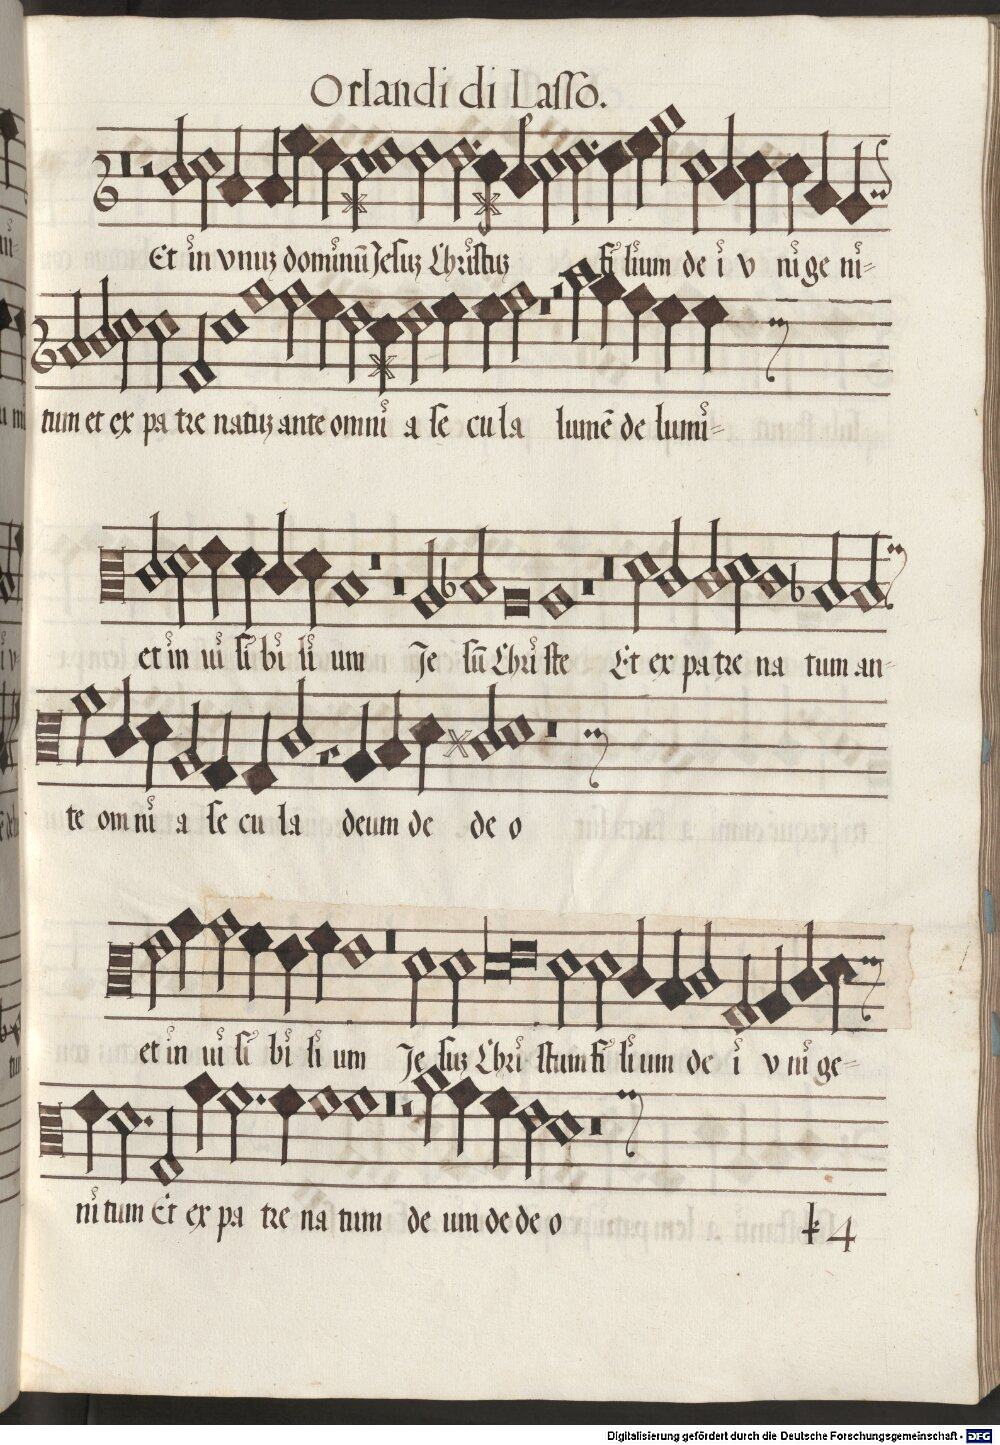 Orlandi di Lasso.
Et in vnuz dominū Jesuz Christuz fi lium de i v ni ge ni=
tum et ex pa tre natuz ante omni a se cu la lumē de lumi=
et in ui si bi li um Je sū Chri ste Et ex pa tre na tum an=
te om ni a se cu la deum de de o
et in ui si bi li um Je suz Chri stum fi li um de i v ni ge=
ni tum Et ex pa tre na tum de um de de o
k 4
Digitalisierung gefördert durch die Deutsche Forschungsgemeinschaft - DFG